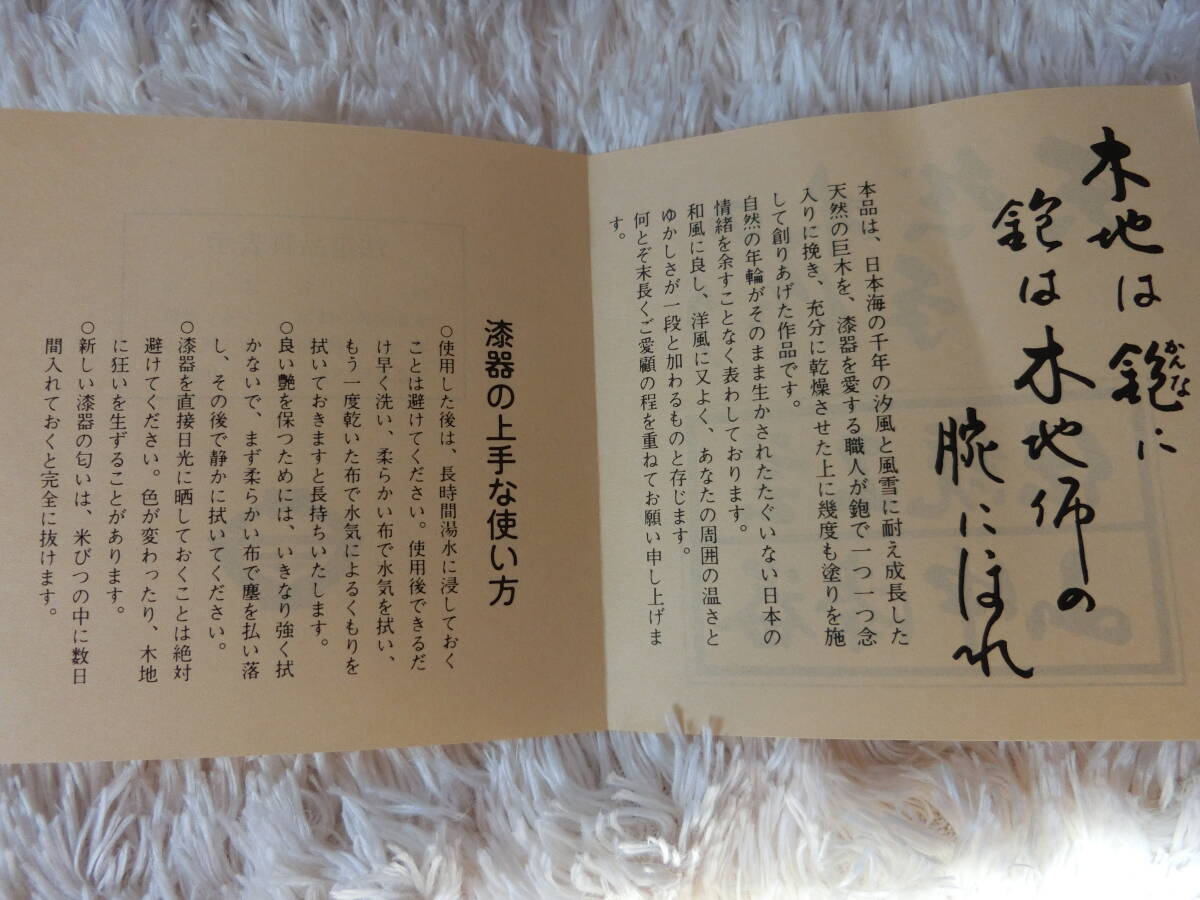 木地は鉋に
かんな
鉋は木地師の
腕にほれ
本品は、日本海の千年の汐風と風雪に耐え成長した
天然の巨木を、漆器を愛する職人が鉋で一つ一つ念
入りに挽き、充分に乾燥させた上に幾度も塗りを施
して創りあげた作品です。
自然の年輪がそのまま生かされたたぐいない日本の
情緒を余すことなく表わしております。
和風に良し、洋風に又よく、あなたの周囲の温さと
ゆかしさが一段と加わるものと存じます。
何とぞ末長くご愛顧の程を重ねてお願い申し上げま
す。
漆器の上手な使い方
○使用した後は、長時間湯水に浸しておく
ことは避けてください。使用後できるだ
け早く洗い、柔らかい布で水気を拭い、
もう一度乾いた布で水気によるくもりを
拭いておきますと長持ちいたします。
○良い艶を保つためには、いきなり強く拭
かないで、まず柔らかい布で塵を払い落
し、その後で静かに拭いてください。
○漆器を直接日光に晒しておくことは絶対
避けてください。色が変わったり、木地
に狂いを生ずることがあります。
○新しい漆器の匂いは、米びつの中に数日
間入れておくと完全に抜けます。